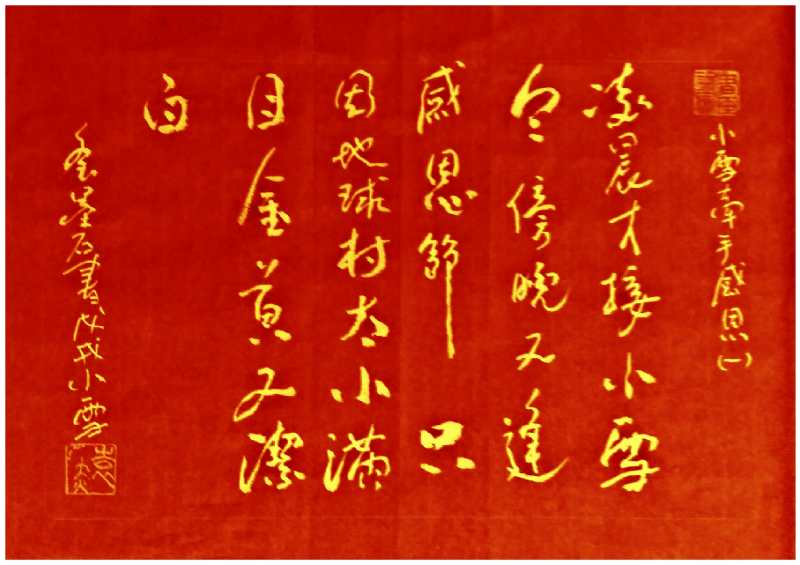 小雪牵手感恩(一)
凌晨才接小雪
令傍晚又逢
感恩節 只
因地球村太小滿
目金黄又潔
白
石書戊戌小雪